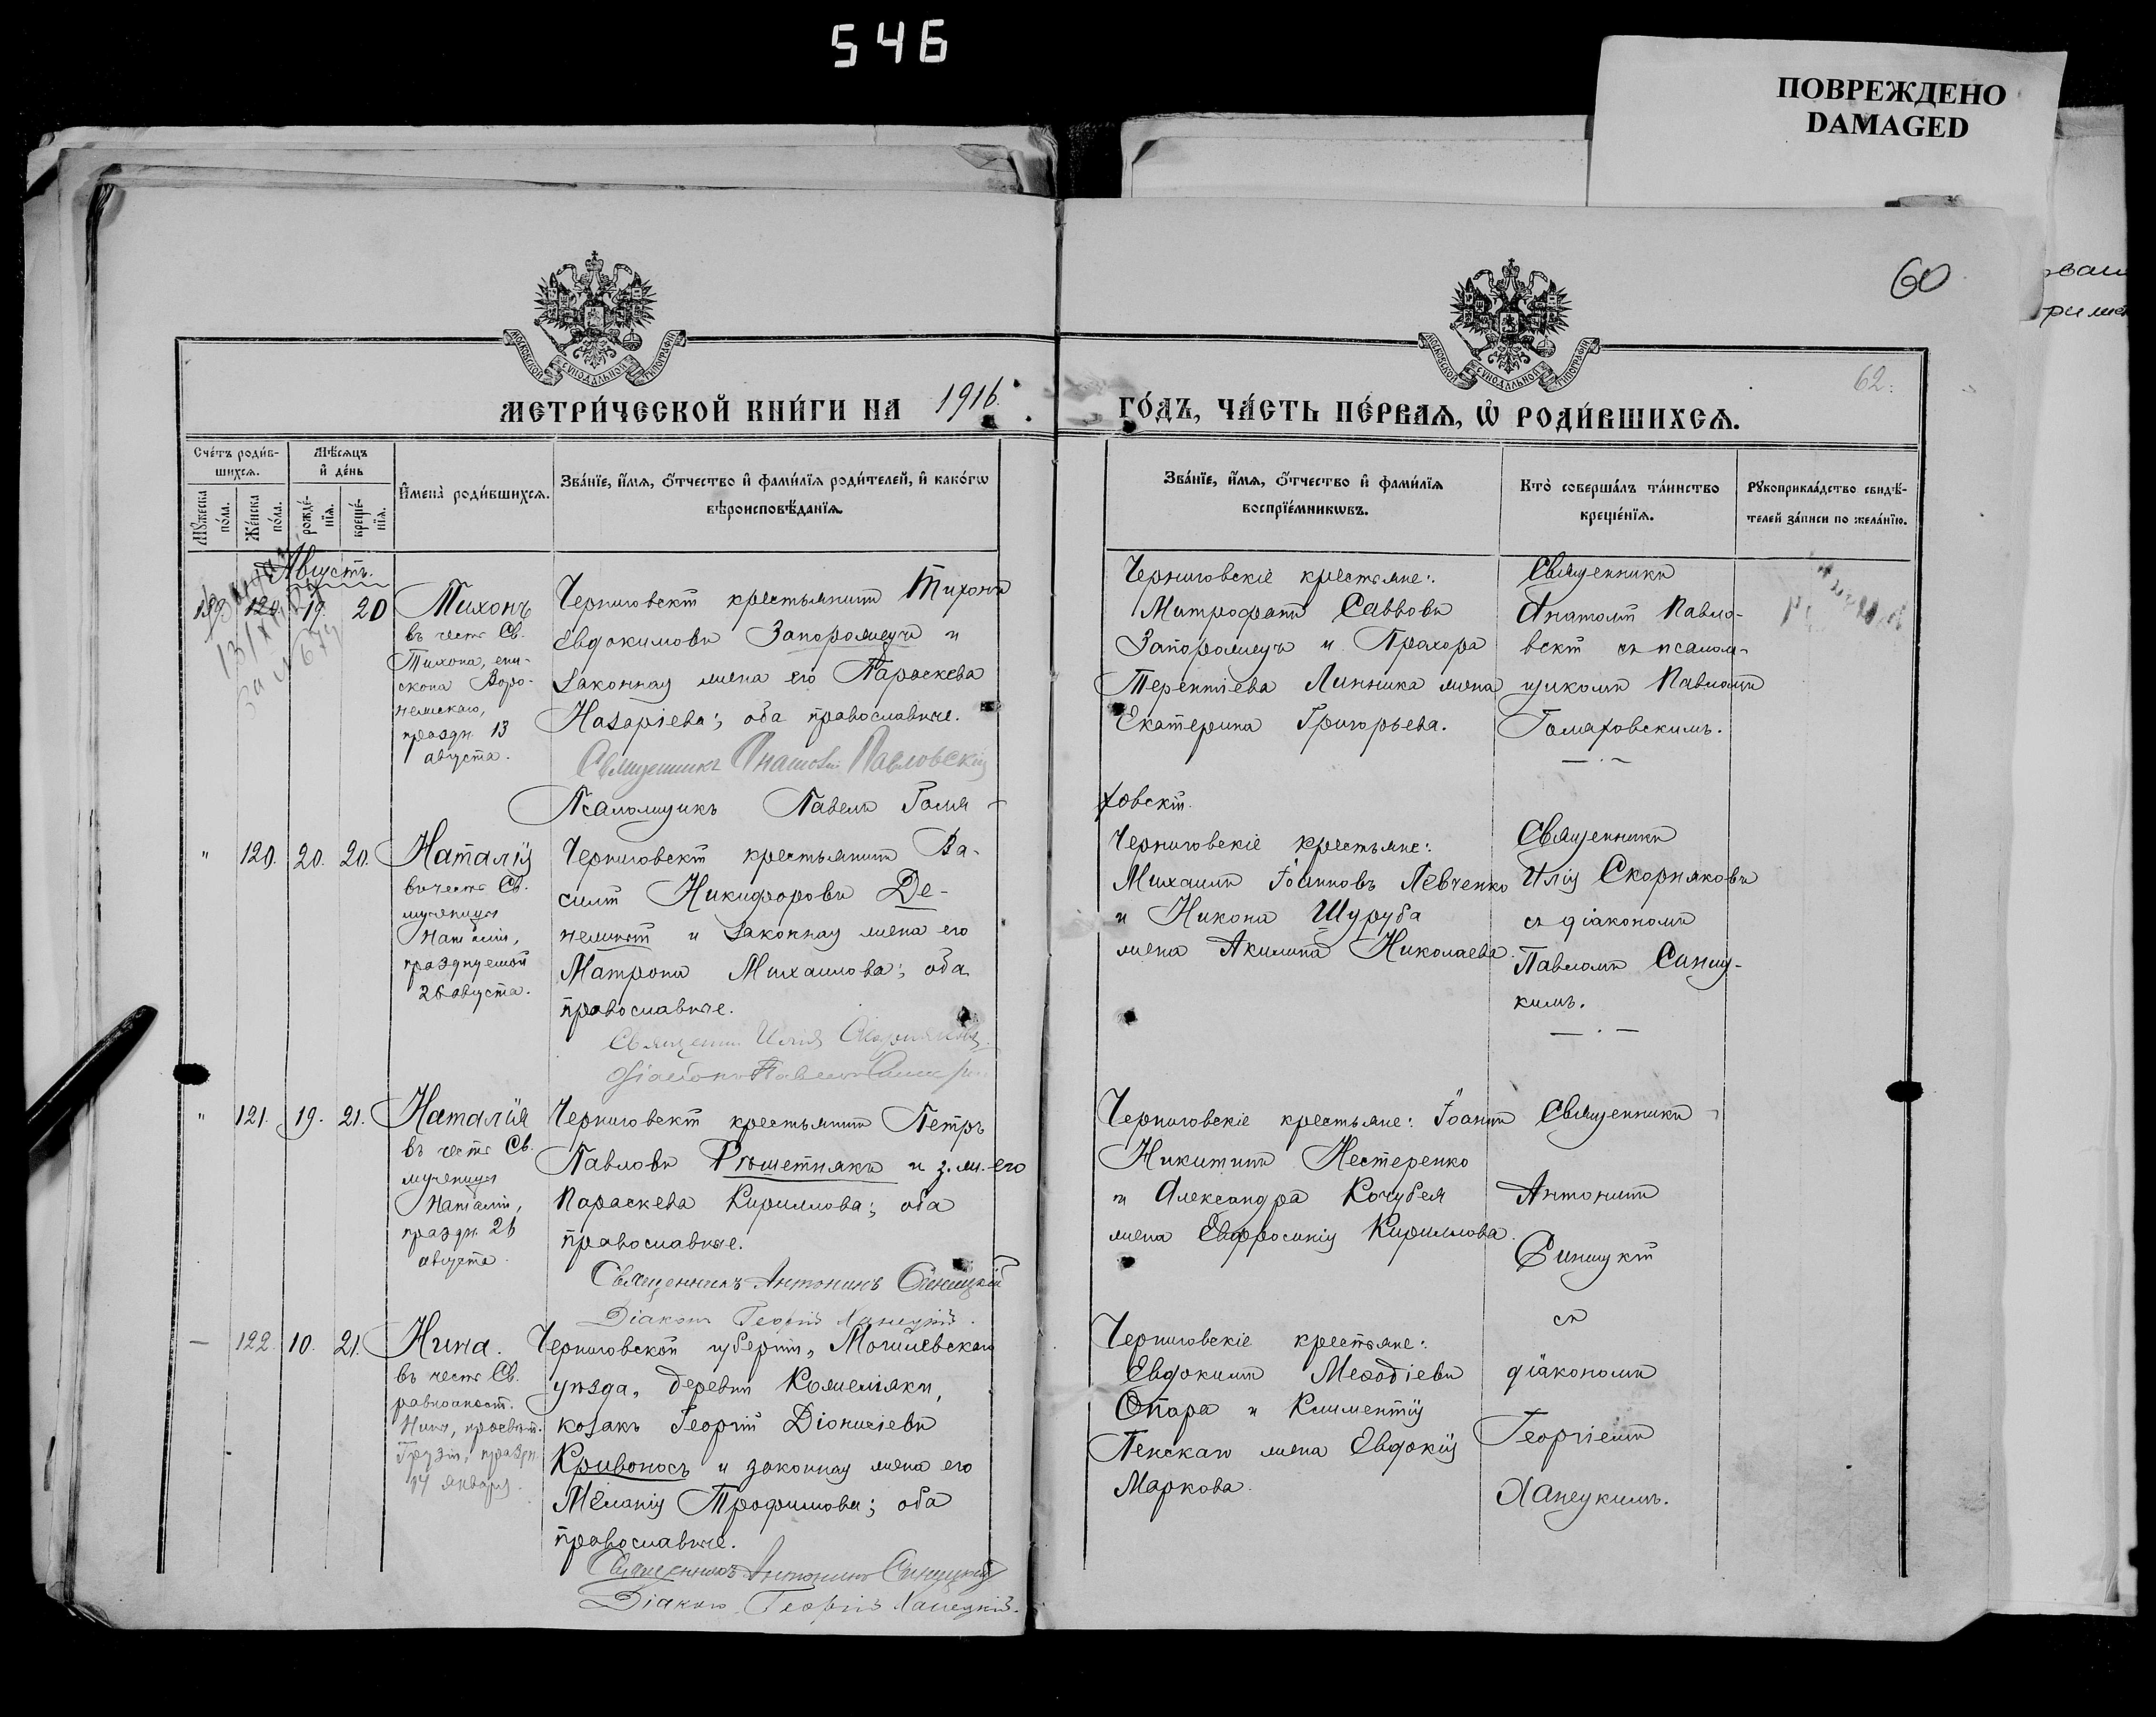 546
ПОВРЕЖДЕНО
DAMAGED
60
62.
МОСКОВСКОЙ СѴНОДАЛЬНОЙ ТИПОГРАФІИ
МОСКОВСКОЙ СѴНОДАЛЬНОЙ ТИПОГРАФІИ
МЕТРИ́ЧЕСКОЙ КНИ́ГИ НА 1916.
ГО́ДЪ, ЧА́СТЬ ПЕ́РВАѦ, Ѡ҆ РОДИ́ВШИХСѦ.
Сче́тъ роди́вшихсѧ.
Мѣ́сѧцъ и҆ де́нь
Мꙋ́жеска по́ла.
Же́нска по́ла.
рожде́нїѧ.
креще́нїѧ.
И҆мена̀ роди́вшихсѧ.
Зва́нїе, и҆́мѧ, ѻ҆́тчество и҆ фами́лїѧ роди́телей, и҆ како́гѡ
вѣроисповѣ́данїѧ.
Зва́нїе, и҆́мѧ, ѻ҆́тчество и҆ фами́лїѧ
воспрїе́мникѡвъ.
Кто̀ соверша́лъ та́инство
креще́нїѧ.
Рꙋкоприкла́дство свидѣ́-
телей за́писи по жела́нїю.
Августъ.
19. 20
Тихонъ
въ честь Св.
Тихона, епи-
скопа Воро-
нежскаго,
праздн. 13
августа.
Черниговскій крестьянинъ Тихонъ
Евдокимовъ Запорожецъ и
законная жена его Параскева
Назаріева; оба православные.
Священникъ Анатолій Павловскій
Псаломщикъ Павелъ Голя-
ховскій.
Черниговскіе крестьяне:
Митрофанъ Саввовъ
Запорожецъ и Прохора
Терентіева Линника жена
Екатерина Григорьева.
Священникъ
Анатолій Павло-
вскій съ псалом-
щикомъ Павломъ
Голяховскимъ.
" 120. 20. 20.
Наталія
въ честь Св.
мученицы
Наталіи,
празднуемой
26 августа.
Черниговскій крестьянинъ Ва-
силій Никифоровъ Де-
нежный и законная жена его
Матрона Михаилова; оба
православные.
Священникъ Илія Скорняковъ.
Діаконъ Павелъ
Черниговскіе крестьяне:
Михаилъ Іоанновъ Левченко
и Никона Шуруба
жена Акилина Николаева.
Священникъ
Илія Скорняковъ
съ діакономъ
Павломъ Синиц-
кимъ.
" 121. 19. 21.
Наталія
въ честь Св.
мученицы
Наталіи,
праздн. 26
августа.
Черниговскій крестьянинъ Петръ
Павловъ Рѣшетнякъ и з. ж. его
Параскева Кириллова; оба
православные.
Священникъ Антонинъ Синицкій
Діаконъ Георгій Ханецкій.
Черниговскіе крестьяне: Іоаннъ
Никитинъ Нестеренко
и Александра Кочубея
жена Евфросинія Кириллова.
Священникъ
Антонинъ
Синицкій
съ
діакономъ
Георгіемъ
Ханецкимъ.
— 122. 10. 21.
Нина.
въ честь Св.
равноапост.
Нины, просвѣт.
Грузіи, праздн.
14 января.
Черниговской губерніи,
уѣзда, деревни
козакъ Георгій Діонисіевъ
Кривоносъ и законная жена его
Меланія Трофимова; оба
православные.
Священникъ Антонинъ Синицкій
Діаконъ Георгій Ханецкій.
Черниговскіе крестьяне:
Евдокимъ Меѳодіевъ
Опара и Климентія
Пенскаго жена Евдокія
Маркова.